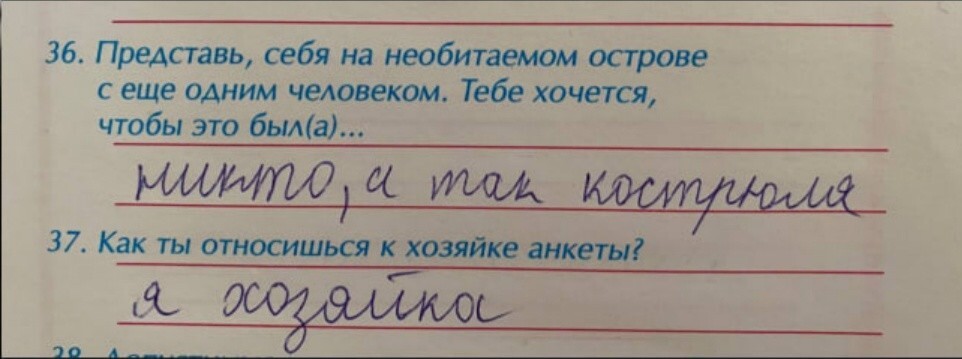 36. Представь, себя на необитаемом острове
с еще одним человеком. Тебе хочется,
чтобы это был(а)...
никто, а так кострюля
37. Как ты относишься к хозяйке анкеты?
я хозяйка
38.